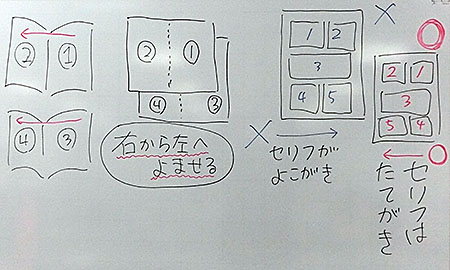 ② ①
④ ③
② ①
④ ③
右から左へ
よませる
1 2
3
4 5
×
×
セリフが
よこがき
○
2 1
3
5 4
○
セリフは
たてがき